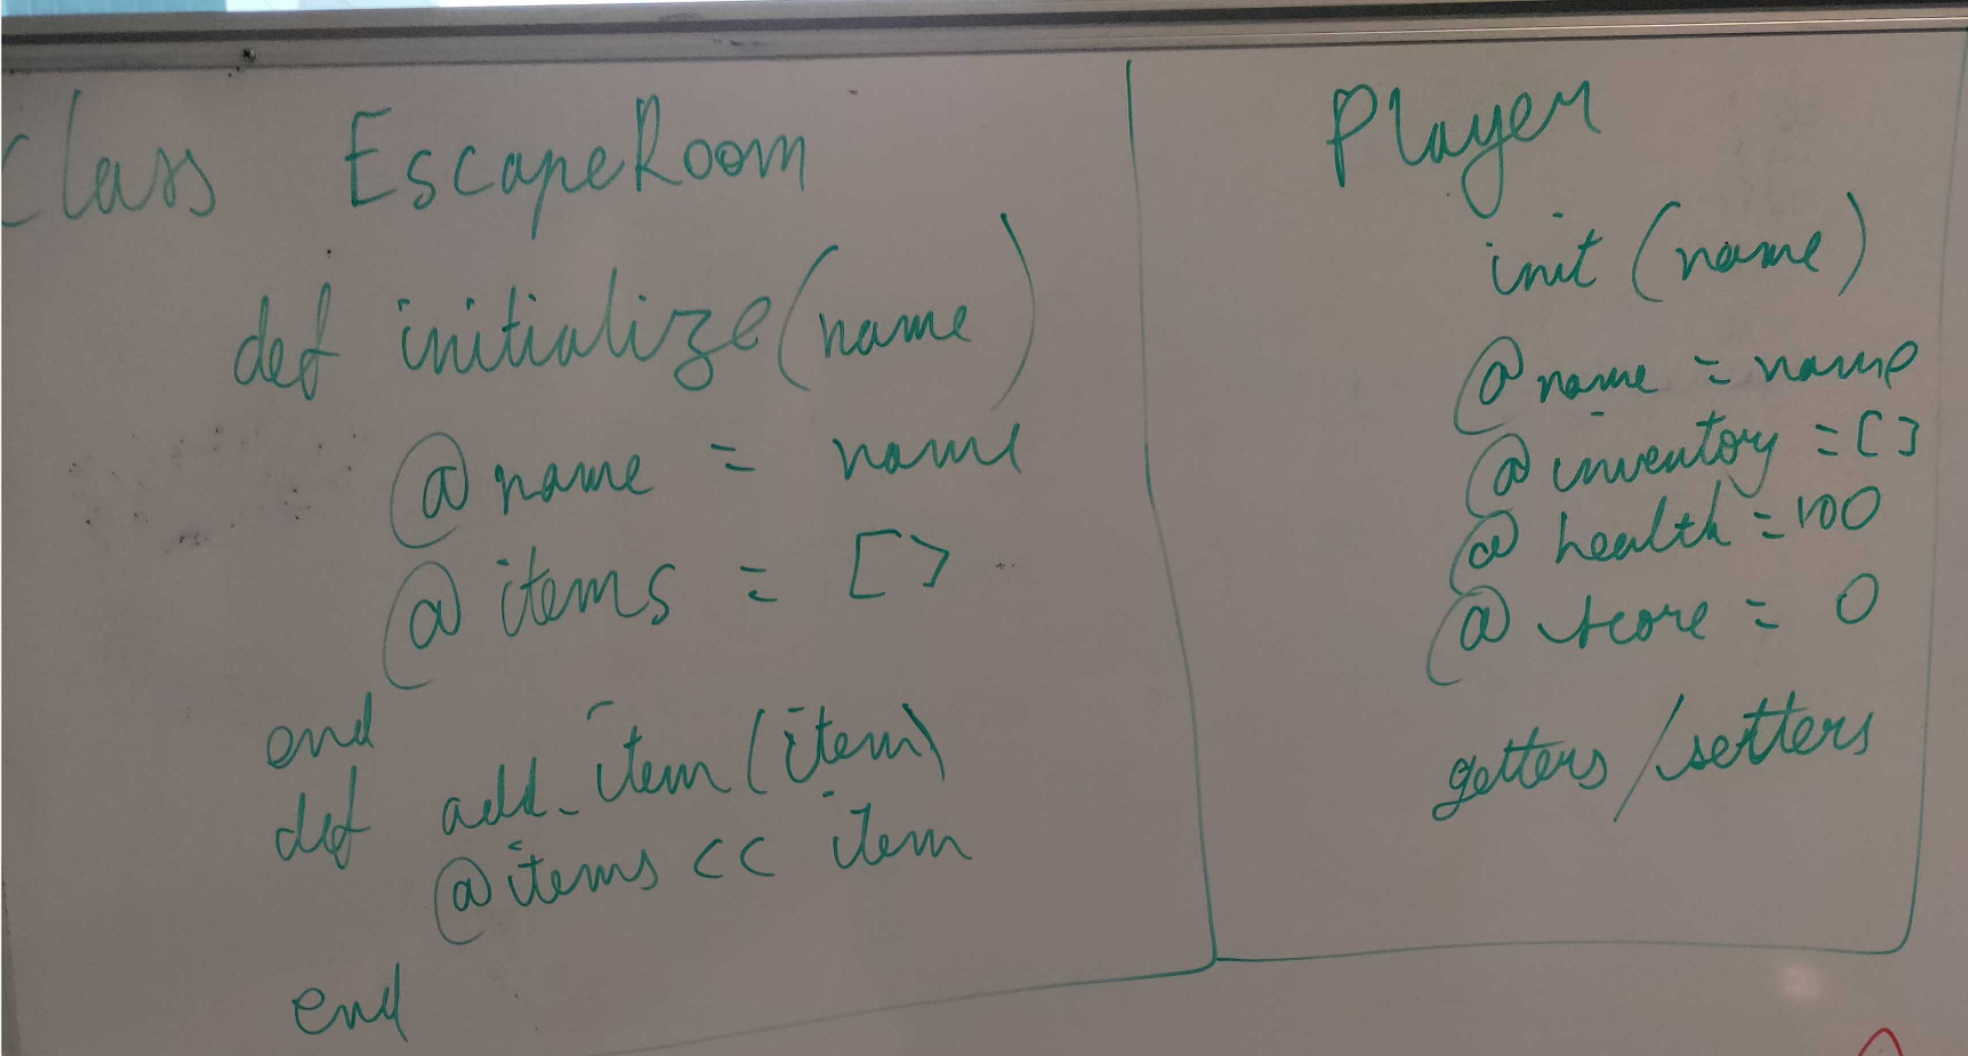 class EscapeRoom
def initialize(name)
@name = name
@items = []
end
def add_item(item)
@items << item
end
Player
init (name)
@name = name
@inventory = []
@health = 100
@score = 0
getters/setters